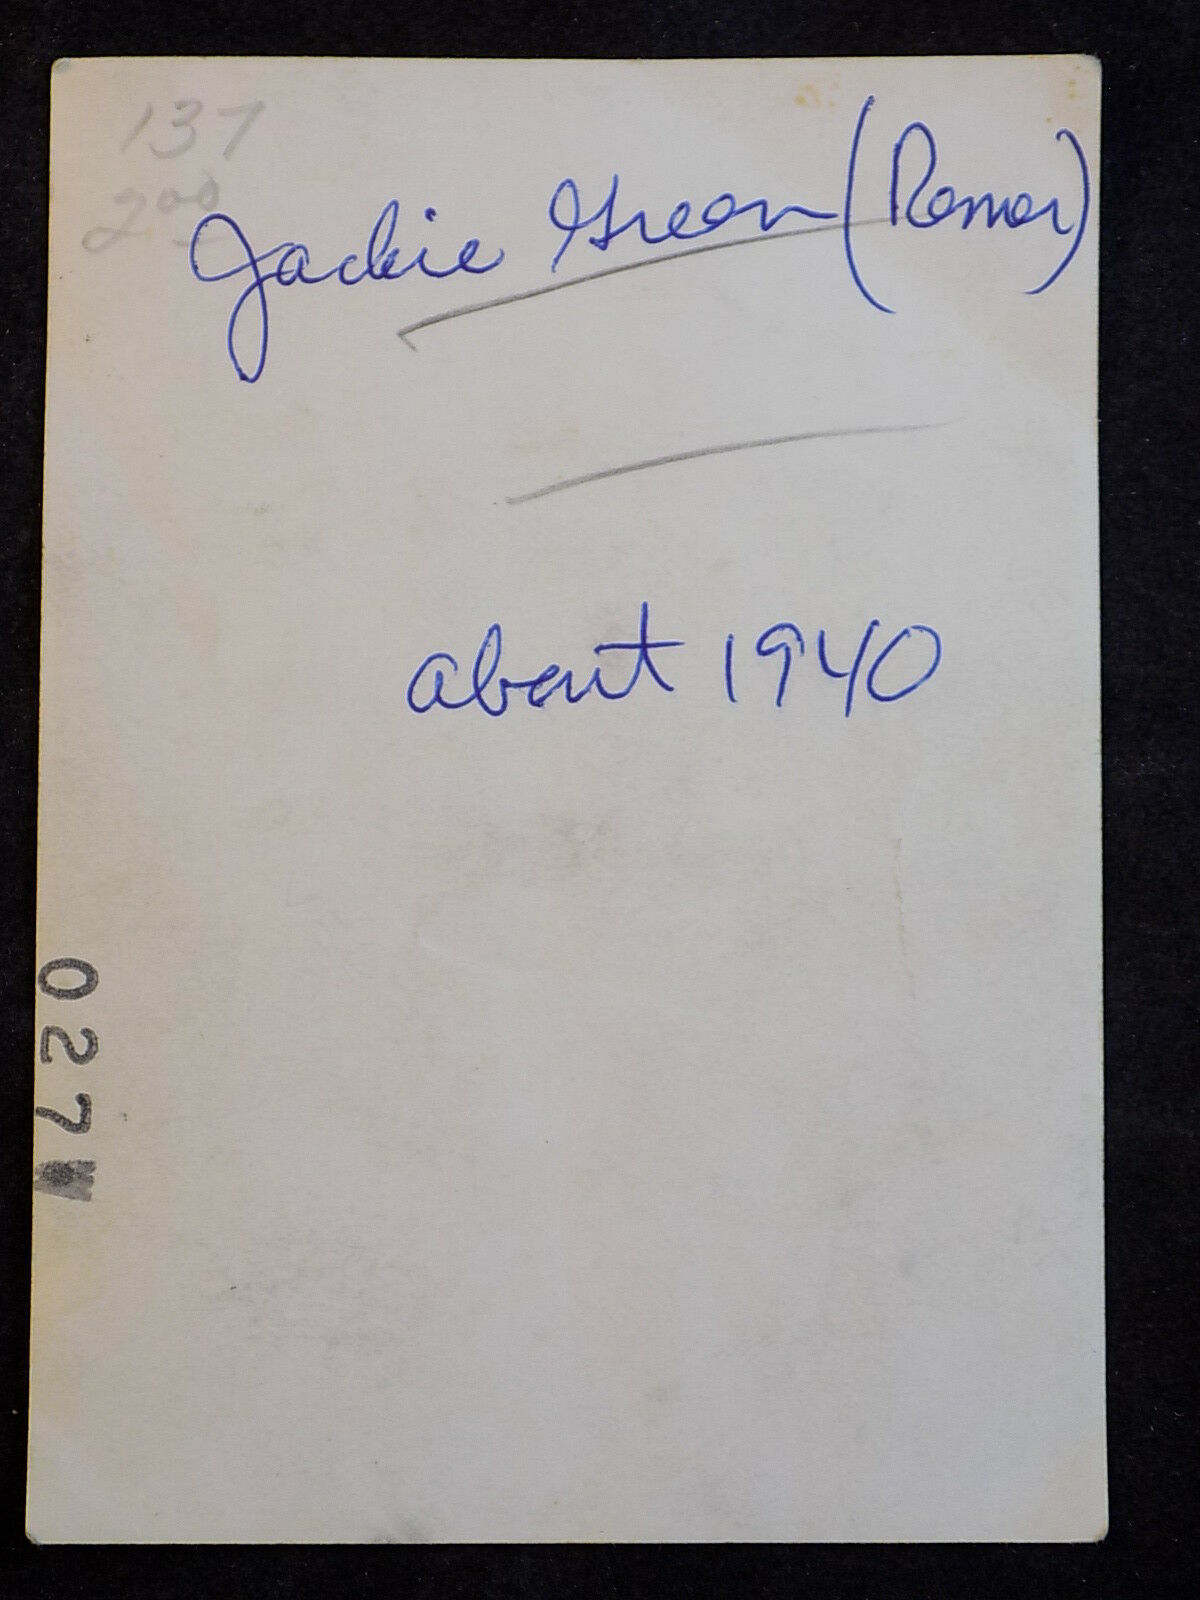 137
200
Jackie Green (Remer)
about 1940
027